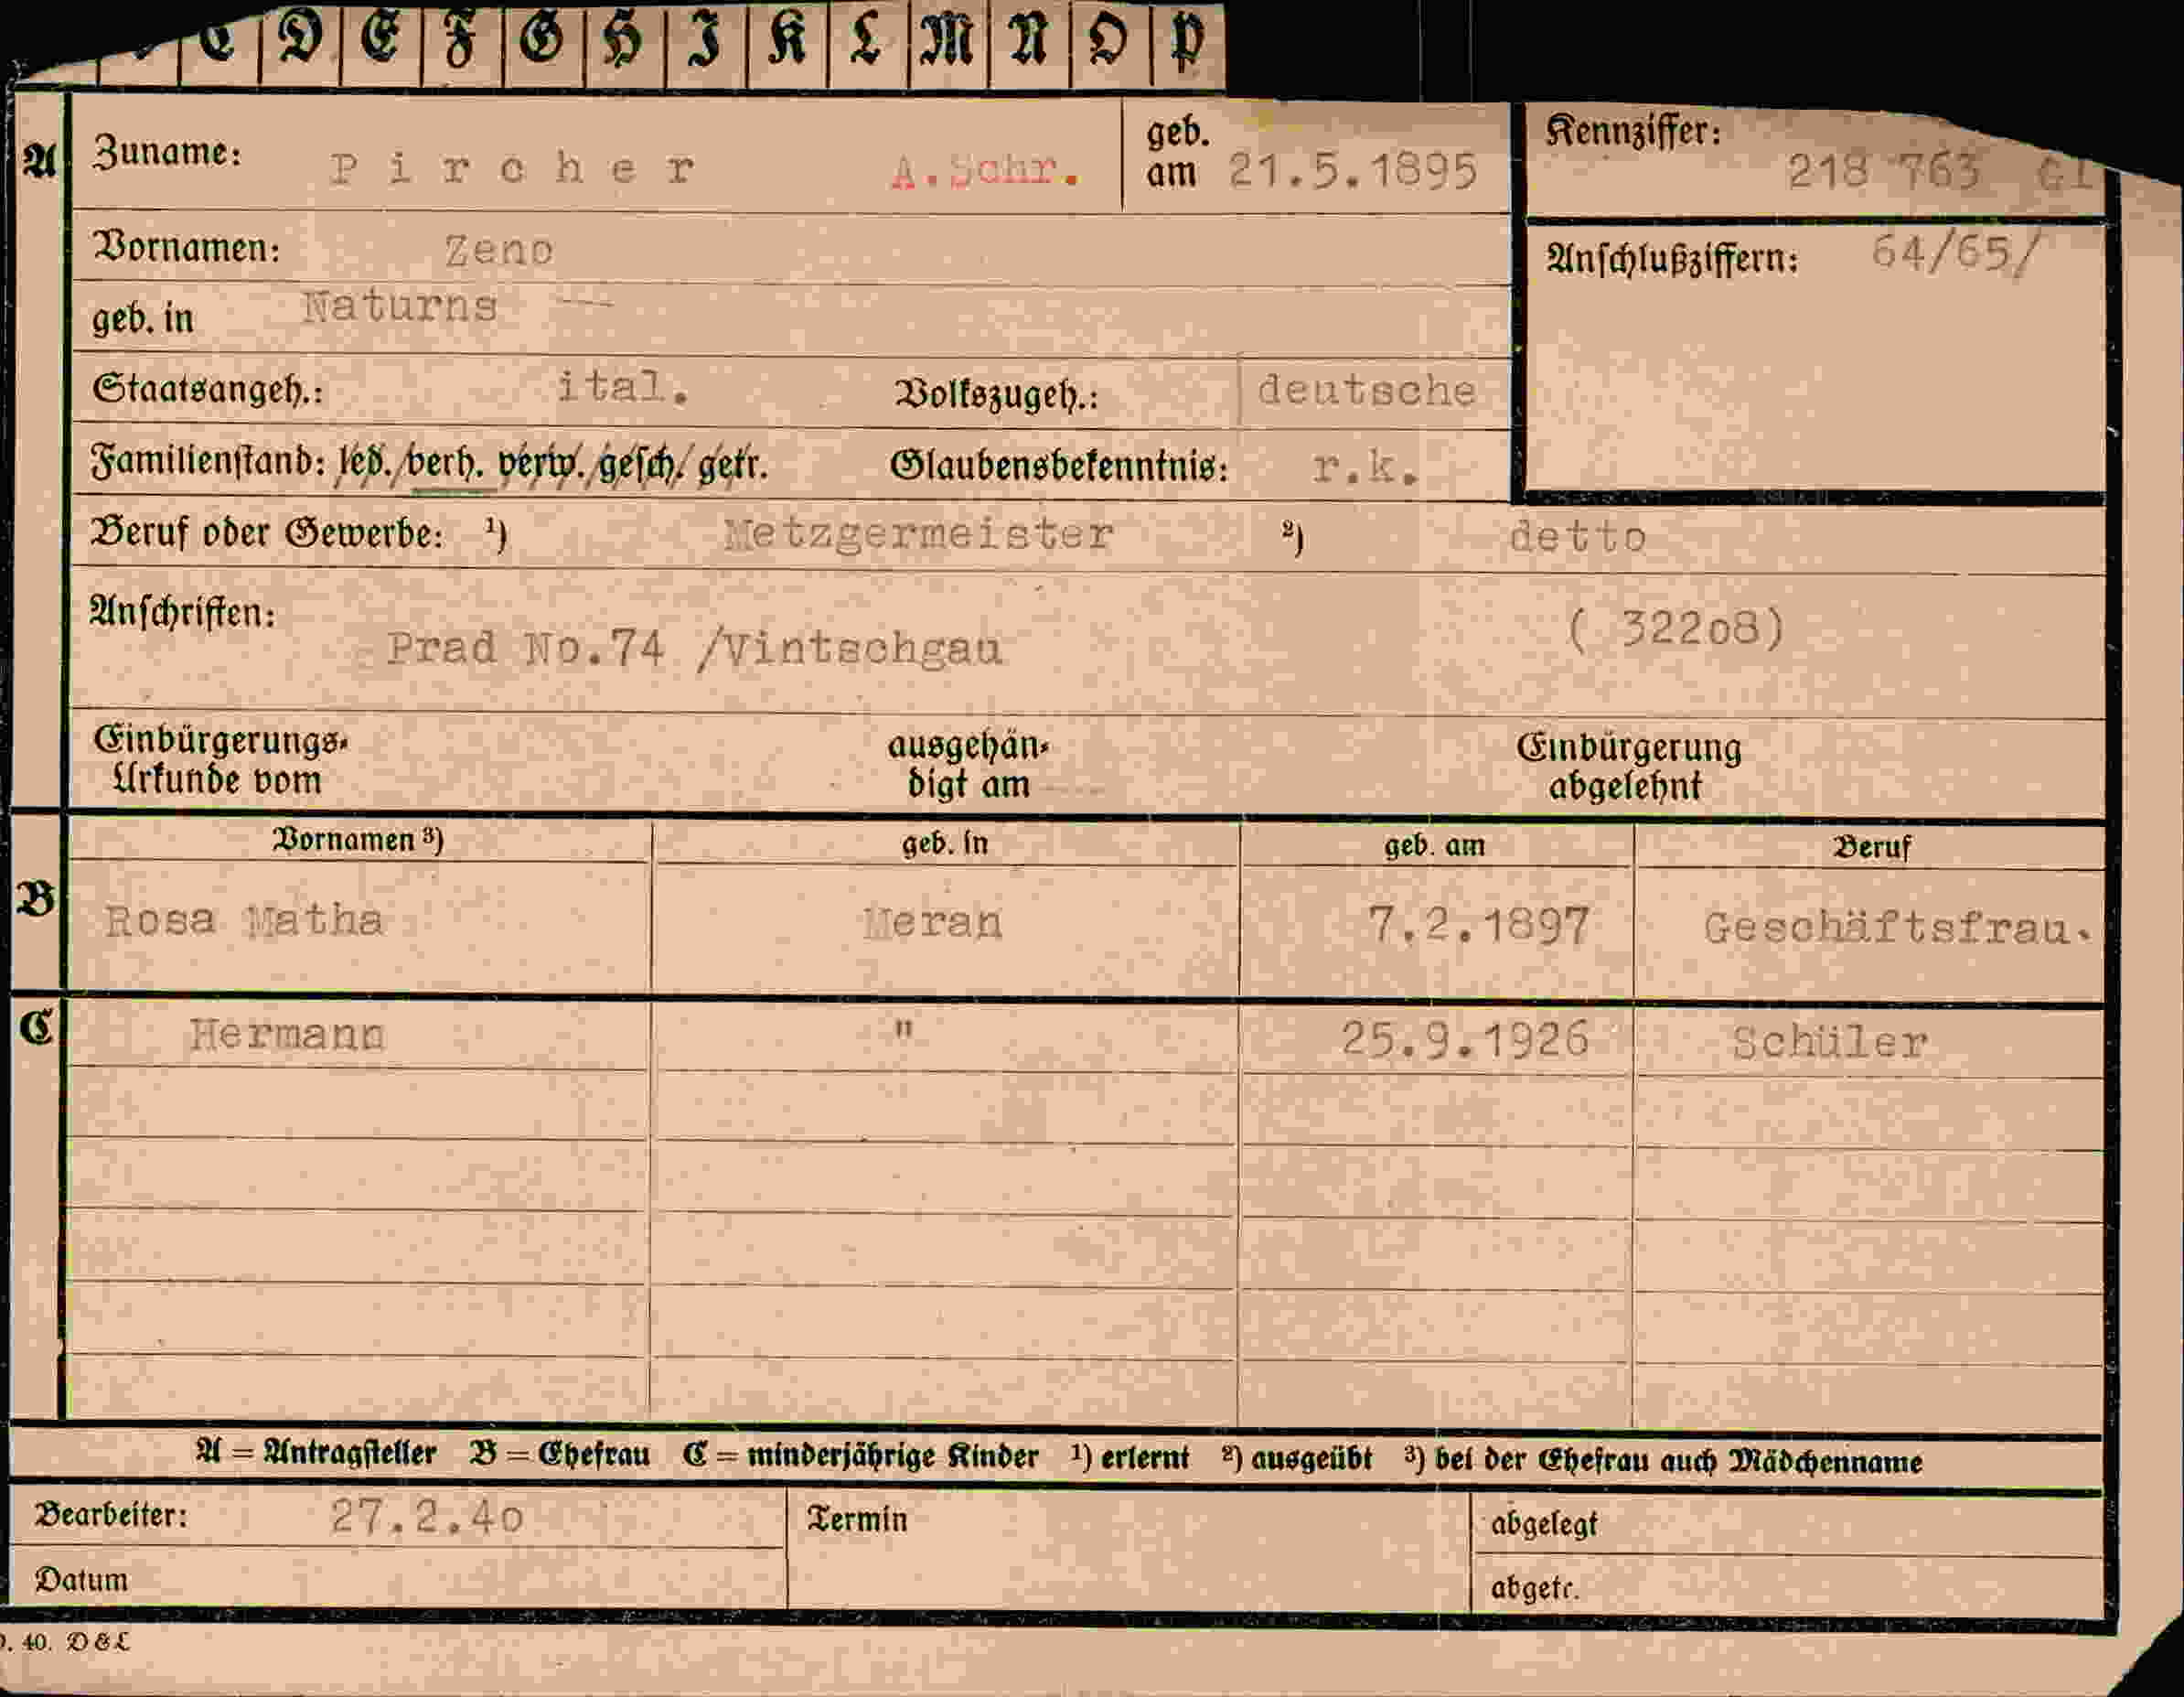 C D E F G H I K L M N O P
A Zuname: Pircher A.Schr. geb. am 21.5.1895 Kennziffer: 218 763 GI
Vornamen: Zeno Anschlußziffern: 64/65/
geb. in Naturns —
Staatsangeh.: ital. Volkszugeh.: deutsche
Familienstand: led./verh. verw./gesch./getr. Glaubensbekenntnis: r.k.
Beruf oder Gewerbe: ¹) Metzgermeister ²) detto
Anschriften: Prad No.74 /Vintschgau ( 322o8)
Einbürgerungs- ausgehän- Einbürgerung
Urkunde vom digt am abgelehnt
Vornamen ³) geb. in geb. am Beruf
B Rosa Matha Meran 7.2.1897 Geschäftsfrau.
C Hermann " 25.9.1926 Schüler
A = Antragsteller B = Ehefrau C = minderjährige Kinder ¹) erlernt ²) ausgeübt ³) bei der Ehefrau auch Mädchenname
Bearbeiter: 27.2.4o Termin abgelegt
Datum abgetr.
. 40. D & L